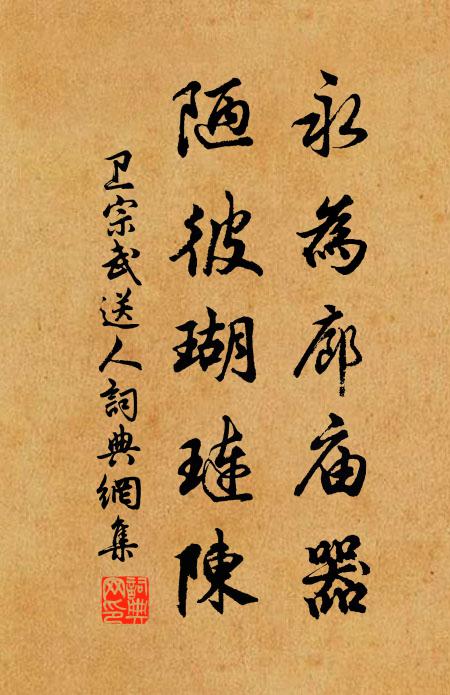 永為廊庙器
陋彼瑚璉陳
卫宗武送人詞典網集
詞典網印